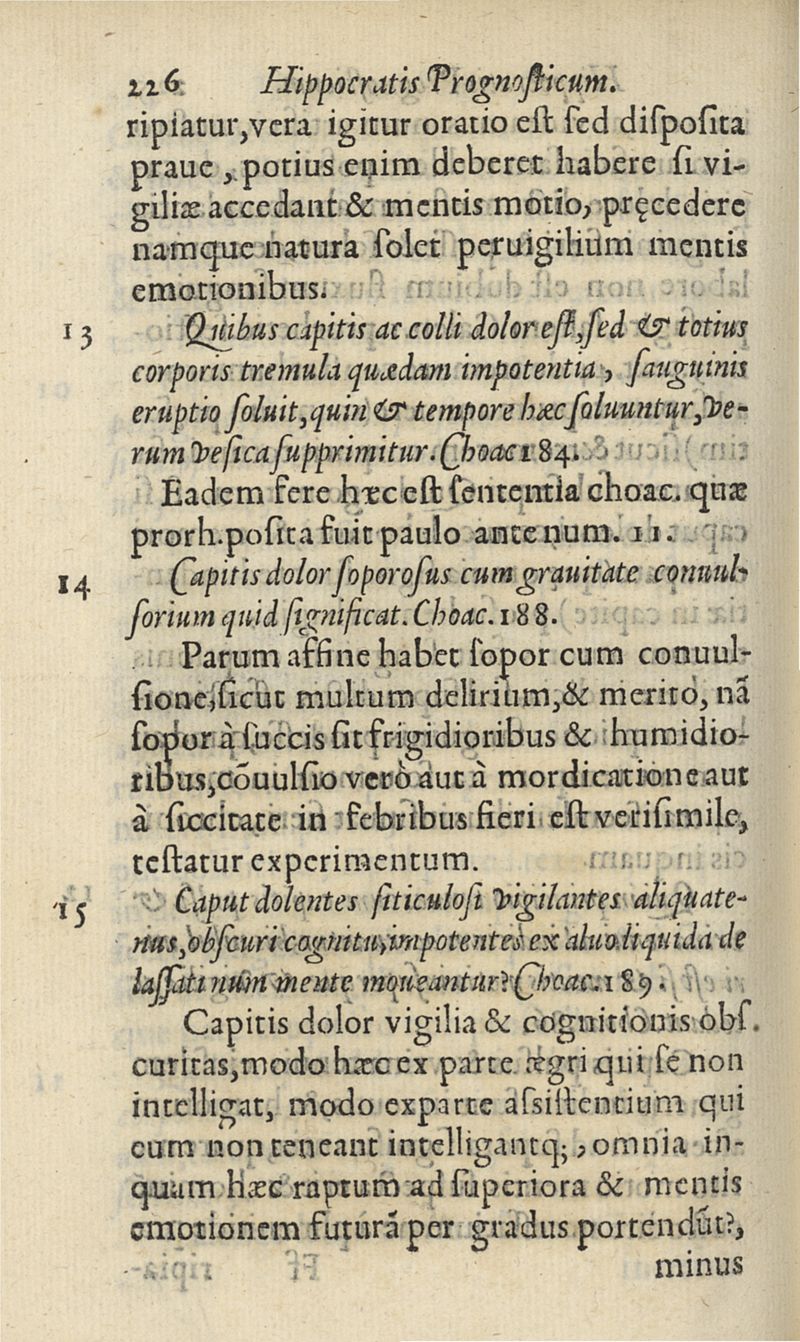 226 Hippocratis Prognosticum.
ripiatur,vera igitur oratio eſt ſed diſpoſita
praue , potius enim deberet habere ſi vi-
giliæ accedant & mentis motio, pręcedere
namque natura ſolet peruigilium mentis
emotionibus.
13 Quibus capitis ac colli dolor eſt,ſed & totius
corporis tremula quædam impotentia, ſauguinis
eruptio ſoluit,quin & tempore hæc ſoluuntur,ve-
rum veſica ſupprimitur. Choac 184.
Eadem fere hæc eſt ſententia choac. quæ
prorh.poſita fuit paulo ante num. 11.
14 Capitis dolor ſoporoſus cum grauitate conuul-
ſorium quid ſignificat. Choac. 188.
Parum affine habet ſopor cum conuul-
ſione,ſicut multum delirium,& merito, nã
ſopor à ſuccis ſit frigidioribus & humidio-
ribus,cõuulſio verò aut à mordicatione aut
à ſiccitate in febribus fieri eſt veriſimile,
teſtatur experimentum.
15 Caput dolentes ſiticuloſi vigilantes aliquate-
nus,obſcuri cognitu,impotentes ex aluo liquida de
laſſati num mente moueantur? Choac. 189.
Capitis dolor vigilia & cognitionis obſ.
curitas,modo hæc ex parte ægri qui ſe non
intelligat, modo exparte aſsiſtentium qui
eum non teneant intelligantq; , omnia in-
quam hæc raptum ad ſuperiora & mentis
emotionem futurã per gradus portendũt?,
minus